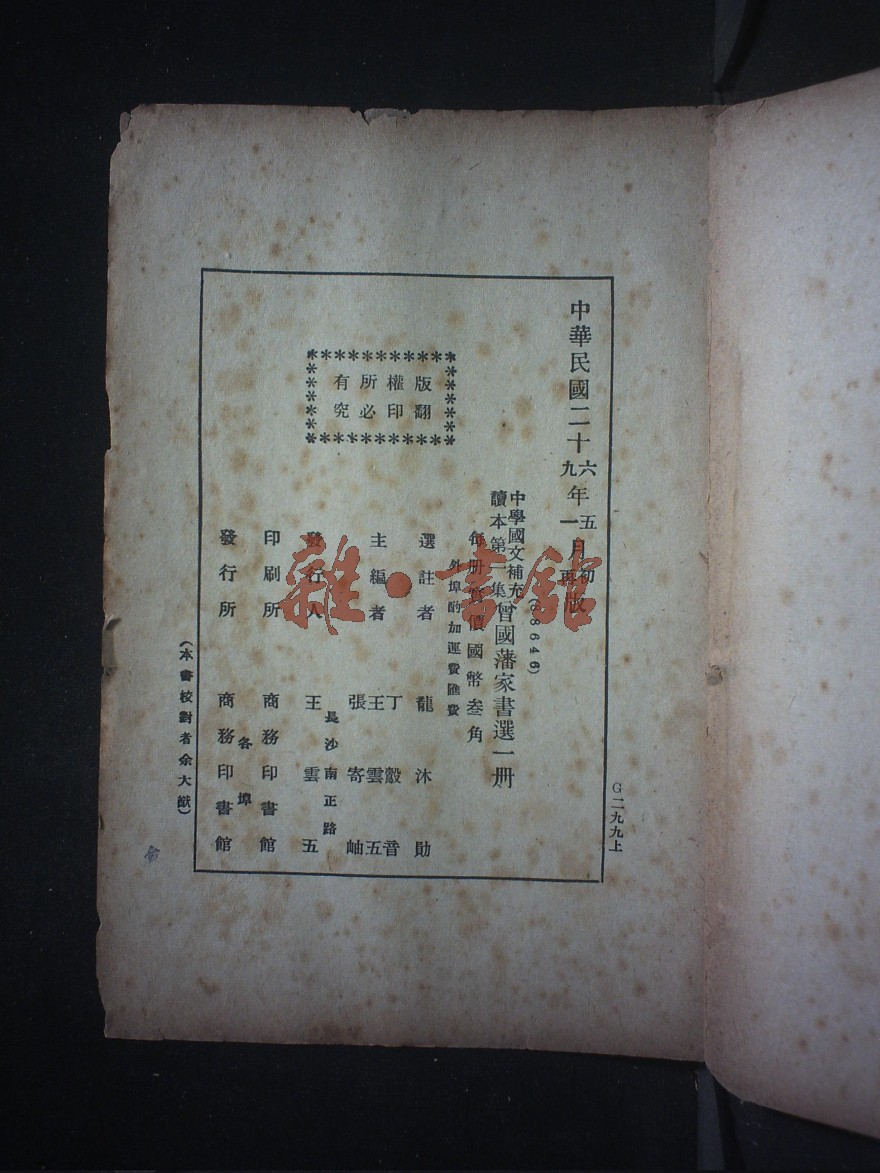 中華民國二十六九年五一月初再版
(68646)
中學國文補充讀本第一集曾國藩家書選一册
每册實價國幣叁角
外埠酌加運費匯費
版權所有
翻印必究
選註者 龍沐勛
主編者 丁㲄音 王雲五 張寄岫
長沙南正路
發行人 王雲五
印刷所 商務印書館
各埠
發行所 商務印書館
(本書校對者余大猷)
G二九九上
雜·書館